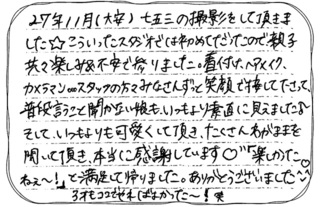 27年11月(大安) 七五三の撮影をして頂きま
した☆こういったスタジオでは初めてだったので親子
共々楽しみ&不安で参りました。着付、ヘアメイク、
カメラマンetcスタッフの方々みなさんずっと笑顔で接して下さって、
普段言うこと聞かない娘も、いつもより素直に見えました♪
そして、いつもよりも可愛くして頂き、たくさんわがままを
聞いて頂き、本当に感謝しています♡♡"楽しかった
ねぇ〜!"と満足して帰りました。ありがとうございました
3才もココでやればよかった〜!笑